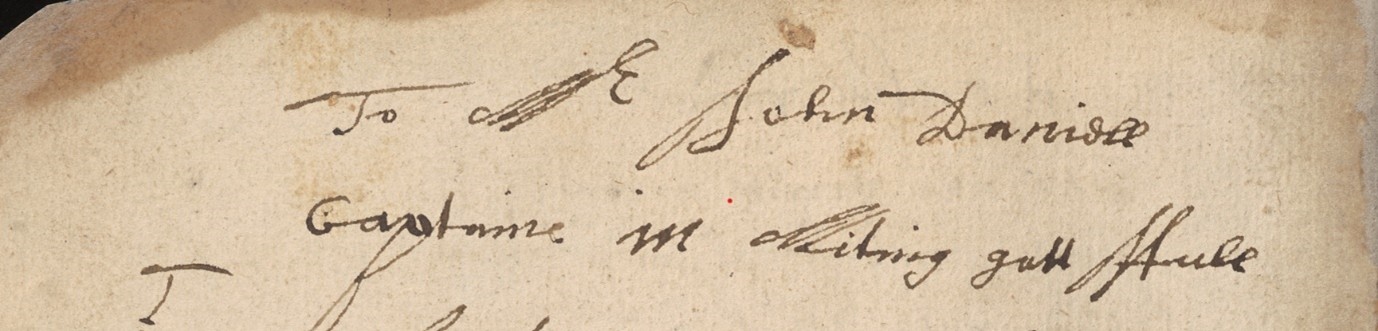 To Mr John Daniell
Captaine in Miting gatt Hull
T